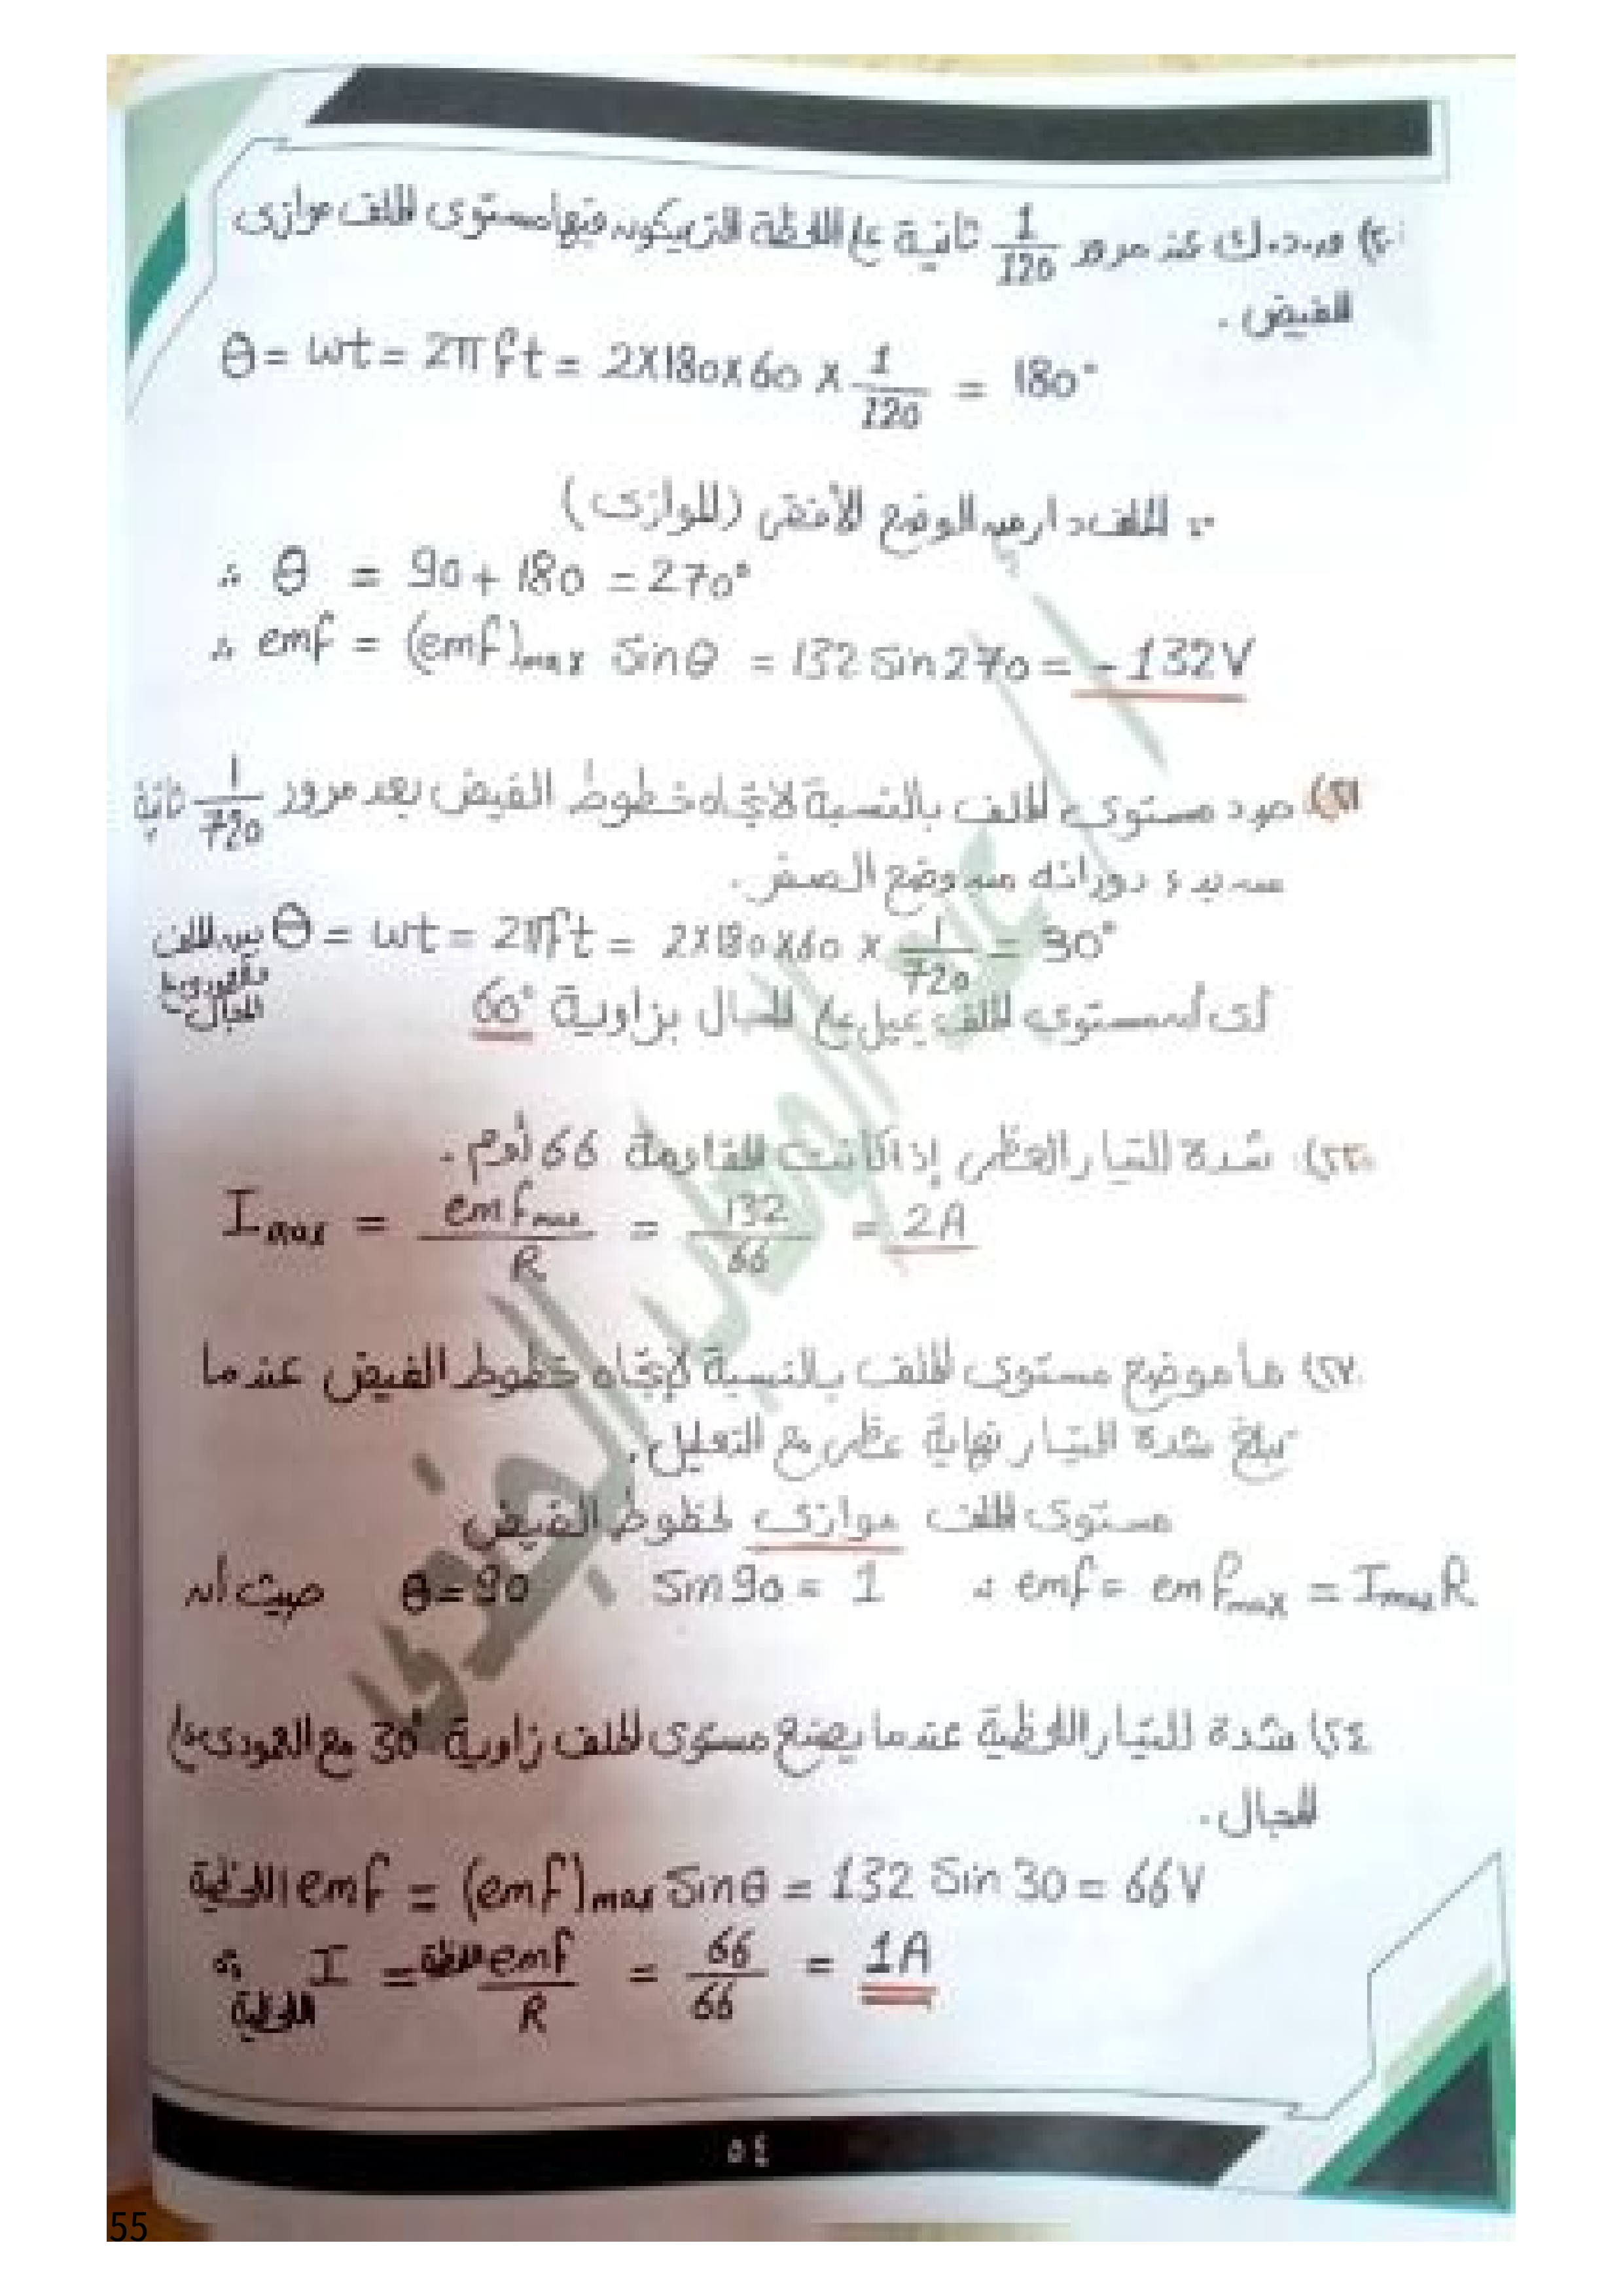 ٢٠) ق.د.ك عند مرور 1/120 ثانية على اللحظة التى يكون فيها مستوى الملف موازى
للفيض .
θ = wt = 2πft = 2x180x60 x 1/120 = 180°
∵ الملف دار من الوضع الأفقى (الموازى)
∴ θ = 90 + 180 = 270°
∴ emf = (emf)max Sinθ = 132 Sin 270 = - 132V
٢١) حدد مستوى الملف بالنسبة لاتجاه خطوط الفيض بعد مرور 1/720 ثانية
من بدء دورانه من وضع الصفر .
θ = wt = 2πft = 2x180x60 x 1/720 = 30° بين الملف والعمودى على المجال
أى أن مستوى الملف يميل على المجال بزاوية 60°
٢٢) شدة التيار العظمى إذا كانت المقاومة 66 أوم .
Imax = emfmax/R = 132/66 = 2A
٢٣) ما موضع مستوى الملف بالنسبة لإتجاه خطوط الفيض عندما
تبلغ شدة التيار نهاية عظمى مع التعليل .
مستوى الملف موازى لخطوط الفيض
حيث أن θ = 90 Sin 90 = 1 ∴ emf = emfmax = Imax R
٢٤) شدة التيار اللحظية عندما يصنع مستوى الملف زاوية 30° مع العمودى على
المجال .
اللحظية emf = (emf)max Sinθ = 132 Sin 30 = 66V
∴ I اللحظية = emf اللحظية/R = 66/66 = 1A
٥٤
55